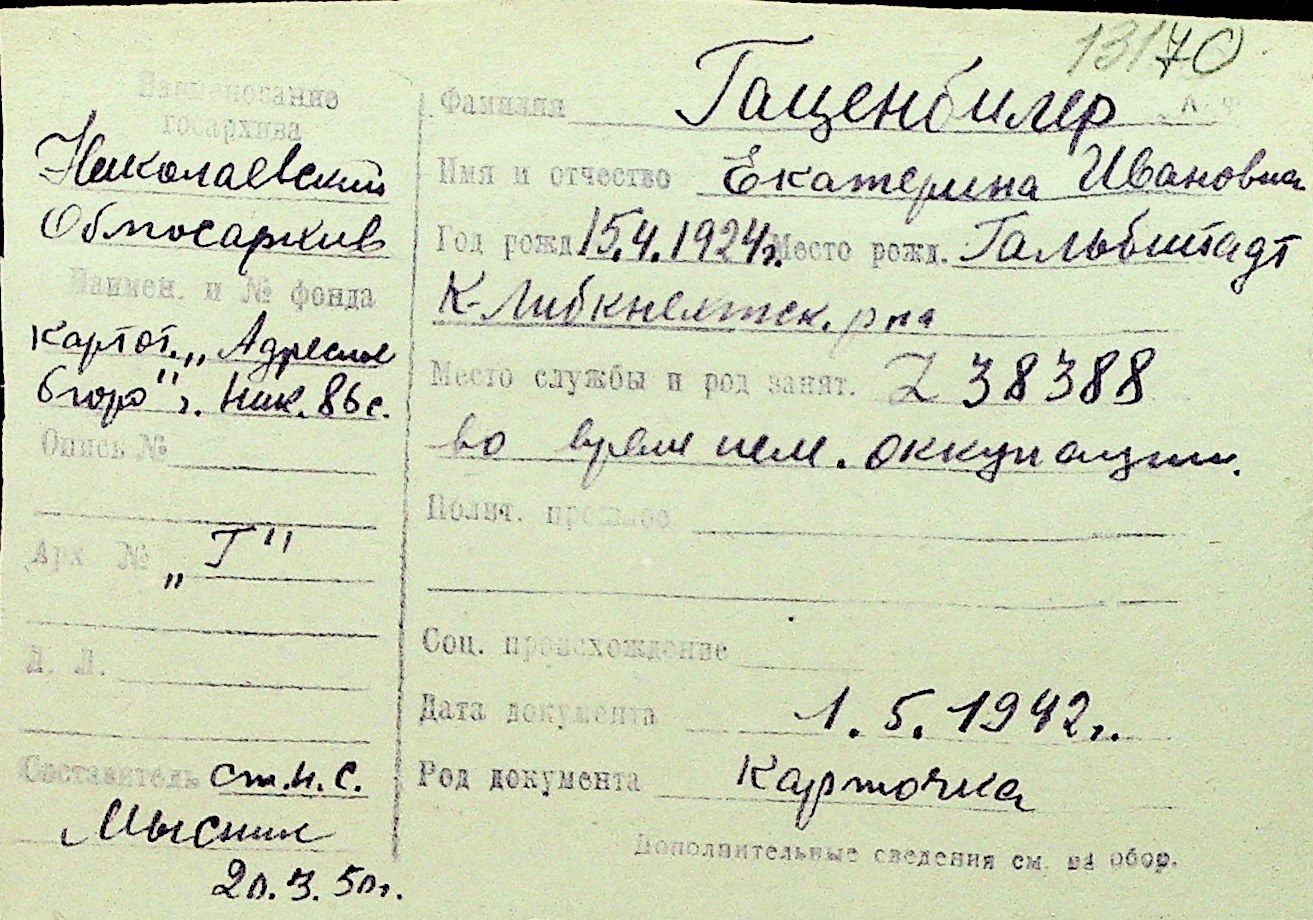 13/70
Наименование
госархива
Николаевский
Облгосархив
Наимен. и № фонда
Картот. „Адресное
бюро" г. Ник. 86с.
Опись №
Арх №
„Г"
Д. Л.
Составитель ст.н.с.
20.3.50г.
Фамилия Гаценбилер
Имя и отчество Екатерина Ивановна
Год рожд. 15.4.1924г. Место рожд. Гальбштадт
К-Либкнехтск. р-на
Место службы и род занят. Z 38388
во время нем. оккупации.
Полит. прошлое
Соц. происхождение
Дата документа 1.5.1942г.
Род документа Карточка
Дополнительные сведения см. на обор.